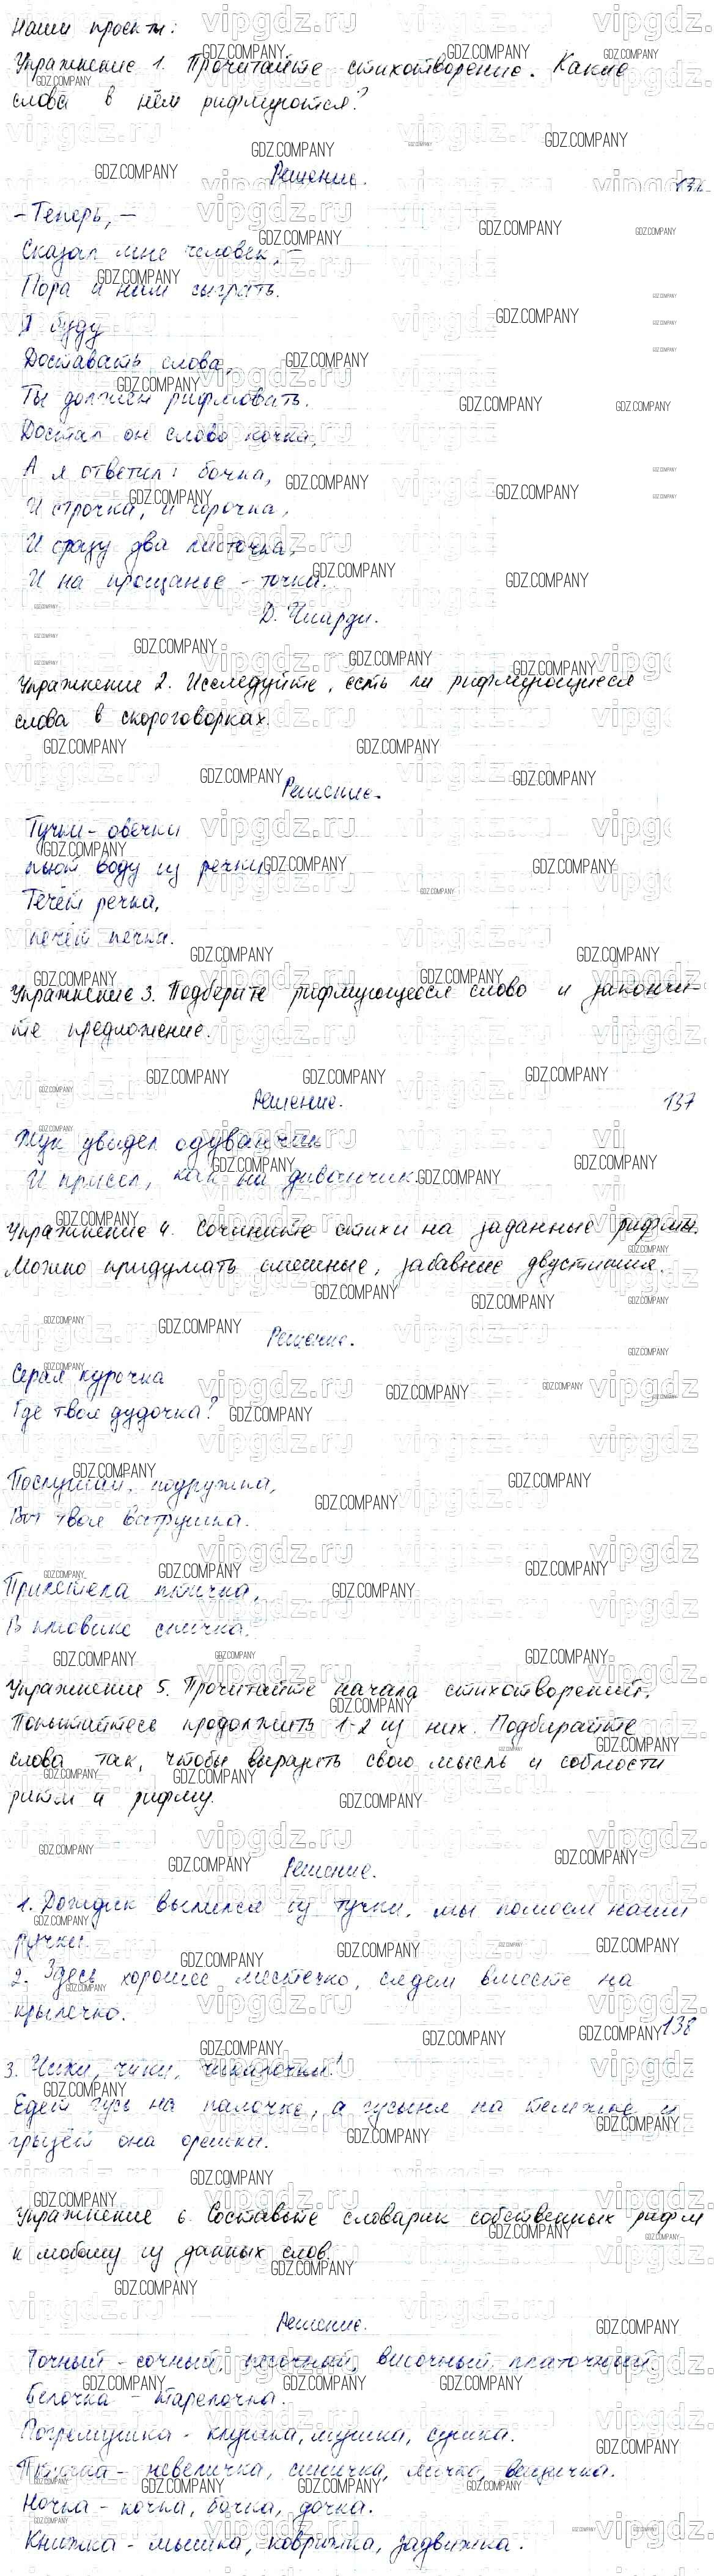 Наши проекты:
Упражнение 1. Прочитайте стихотворение. Какие
слова в нём рифмуются?
Решение.
- Теперь, -
Сказал мне человек, -
Пора и нам сыграть.
Я буду
Доставать слова,
Ты должен рифмовать.
Достал он слово кочка,
А я ответил: бочка,
И строчка, и сорочка,
И сразу два листочка,
И на прощанье - точка.
Д. Чиарди.
Упражнение 2. Исследуйте, есть ли рифмующиеся
слова в скороговорках.
Решение.
Тучки - овечки
пьют воду из речки.
Течёт речка,
печёт печка.
Упражнение 3. Подберите рифмующееся слово и закончи-
те предложение.
Решение. 137
Жук увидел одуванчик
И присел, как на диванчик.
Упражнение 4. Сочините стихи на заданные рифмы.
Можно придумать смешные, забавные двустишия.
Решение.
Серая курочка
Где твоя дудочка?
Послушай, подружка,
Вот твоя ватрушка.
Прилетела птичка,
В клювике спичка.
Упражнение 5. Прочитайте начала стихотворений.
Попытайтесь продолжить 1-2 из них. Подбирайте
слова так, чтобы выразить свою мысль и соблюсти
ритм и рифму.
Решение.
1. Дождик вылился из тучки, мы помоем наши
ручки.
2. Здесь хорошее местечко, сядем вместе на
крылечко.
138
3. Чики, чики, чикалочки!
Едет гусь на палочке, а гусыня на тележке и
грызёт она орешки.
Упражнение 6. Составьте словарик собственных рифм
к любому из данных слов.
Решение.
Точный - сочный, песочный, височный, платочный.
Белочка - тарелочка.
Погремушка - клушка, мушка, сушка.
Птичка - невеличка, синичка, личко, вещичка.
Ночка - кочка, бочка, дочка.
Книжка - мышка, коврижка, задвижка.